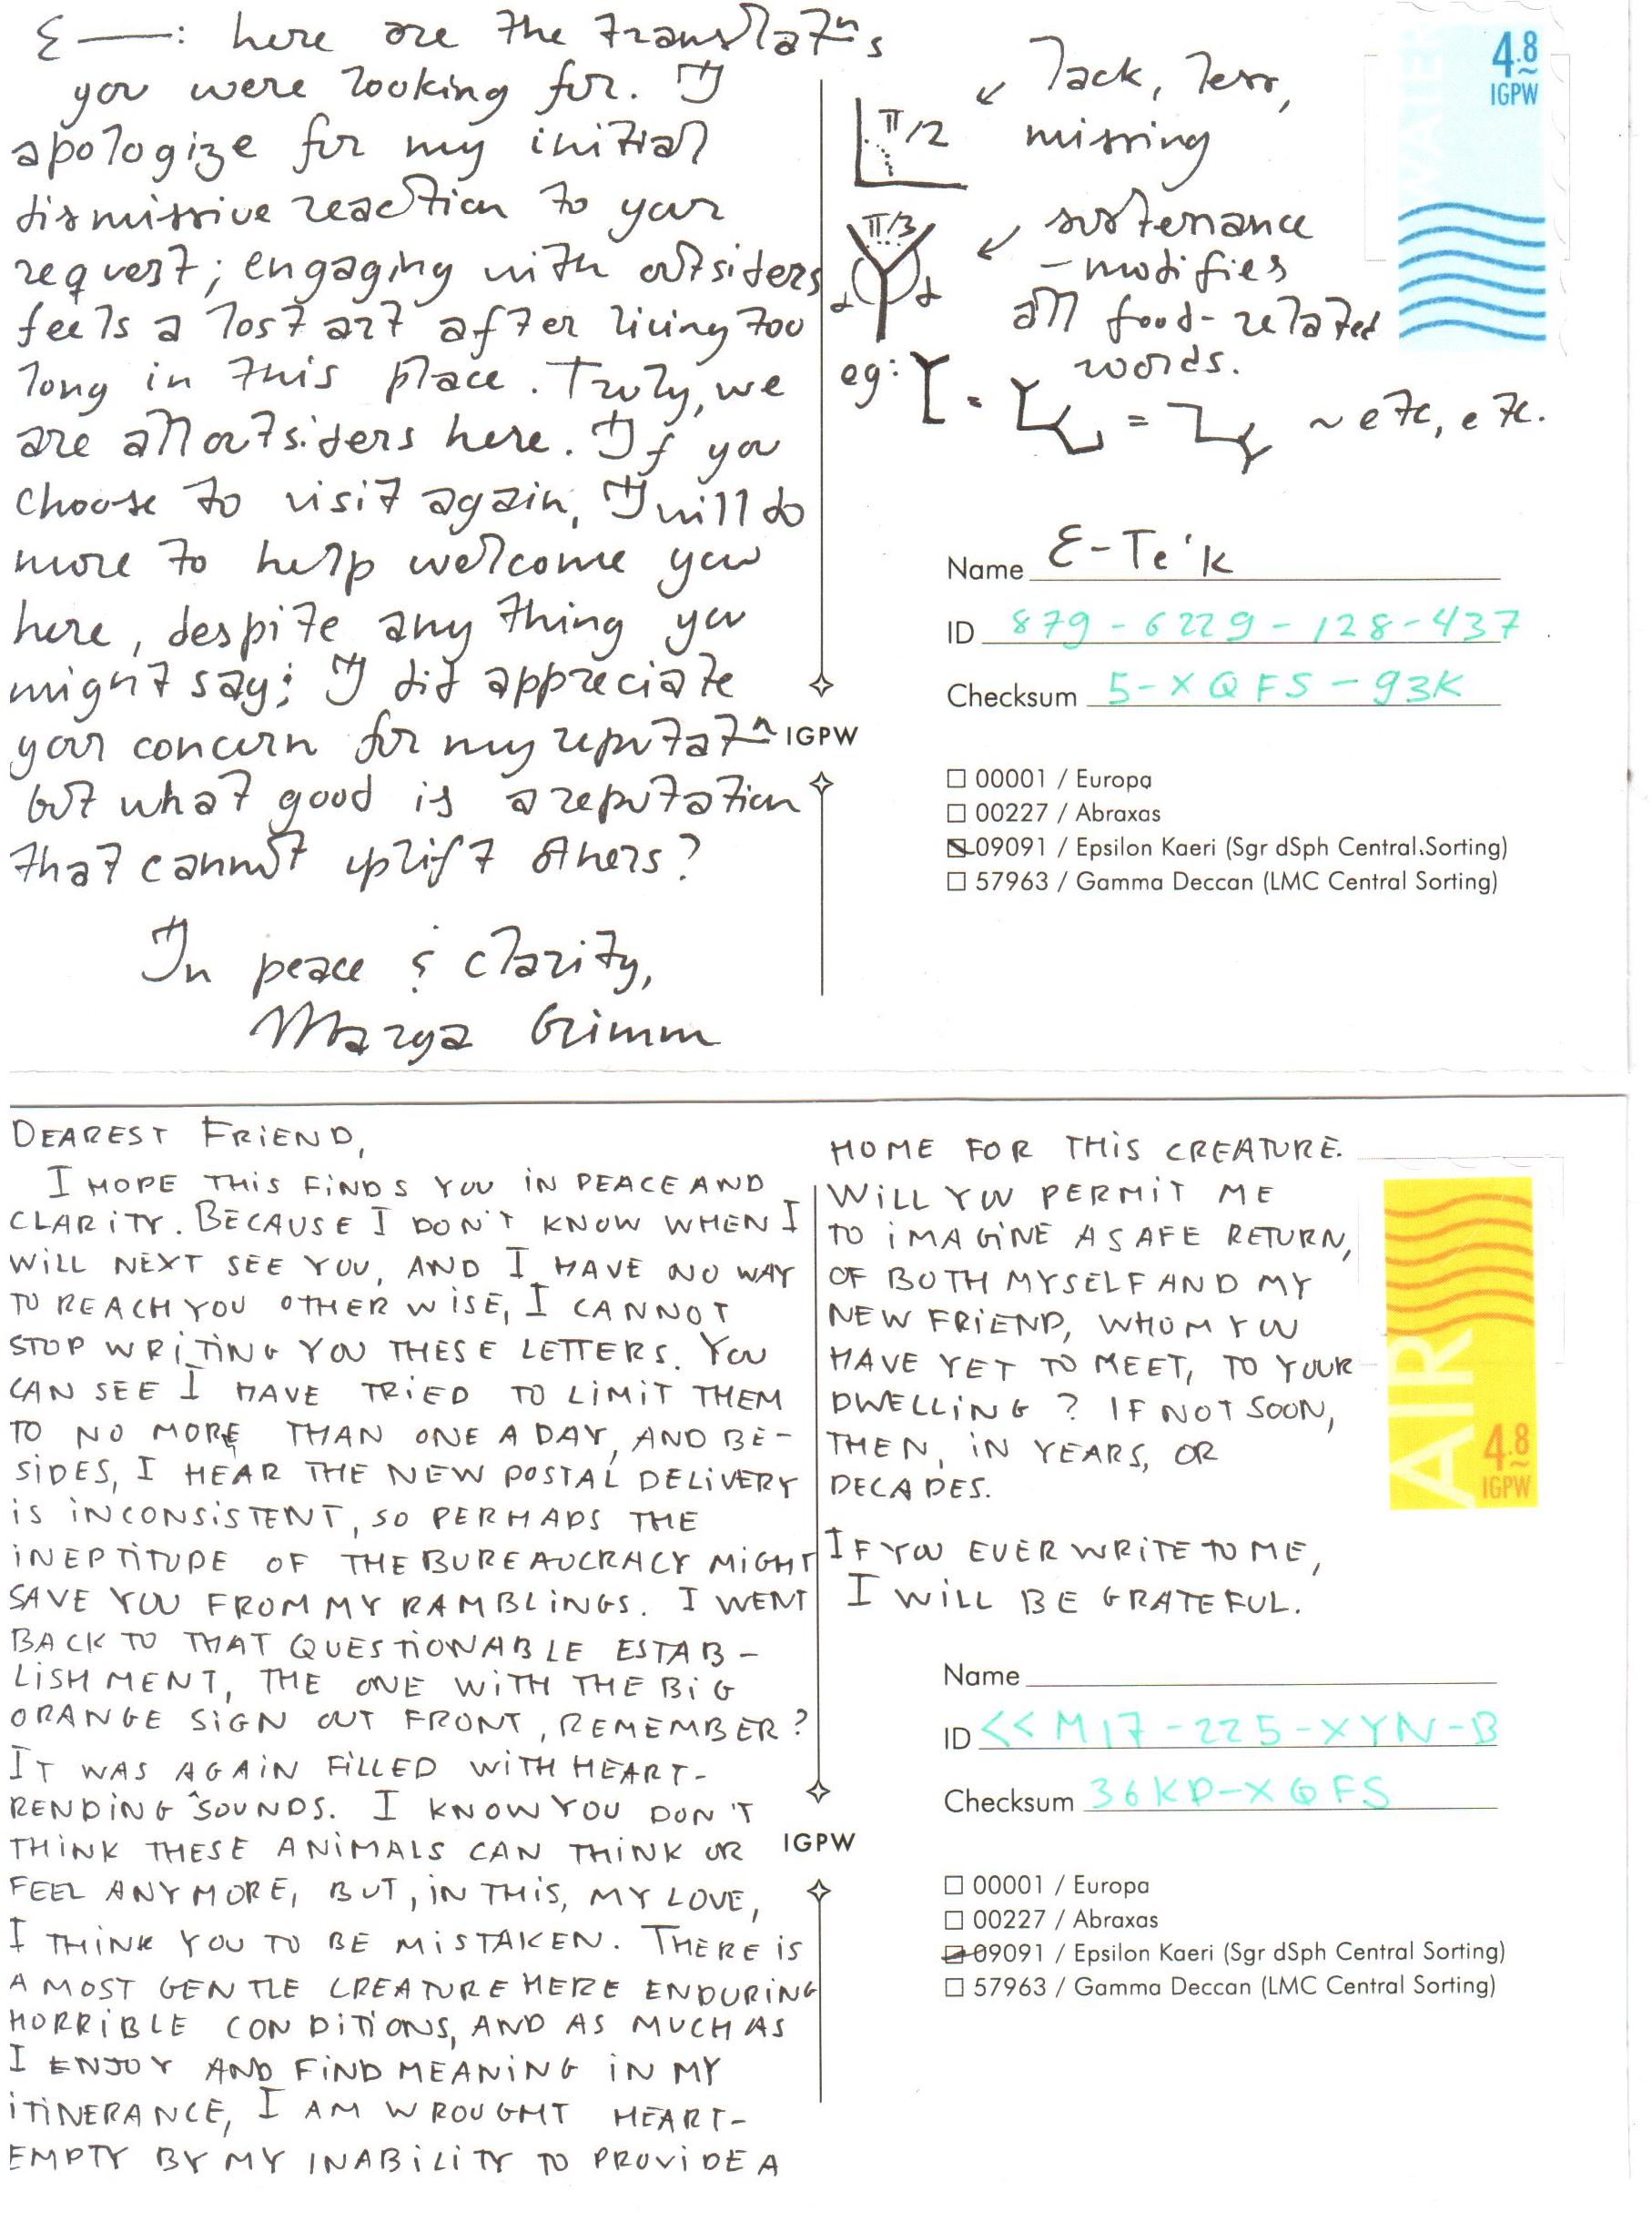 E—: here are the translatns
you were looking for. I
apologize for my initial
dismissive reaction to your
request; engaging with outsiders
feels a lost art after living too
long in this place. Truly, we
are all outsiders here. If you
choose to visit again, I will do
more to help welcome you
here, despite any thing you
might say; I did appreciate
your concern for my reputatn
but what good is a reputation
that cannot uplift others?
In peace & clarity,
Marga Grimm
π/2
↙ lack, less,
missing
π/3
α α
↙ sustenance
-modifies
all food-related
words.
eg:
= = ~ etc, etc.
WATER
4.8
IGPW
IGPW
Name E-Te'k
ID 879-6229-128-437
Checksum 5-XQFS-93K
00001 / Europa
00227 / Abraxas
09091 / Epsilon Kaeri (Sgr dSph Central Sorting)
57963 / Gamma Deccan (LMC Central Sorting)
DEAREST FRIEND,
I HOPE THIS FINDS YOU IN PEACE AND
CLARITY. BECAUSE I DON'T KNOW WHEN I
WILL NEXT SEE YOU, AND I HAVE NO WAY
TO REACH YOU OTHERWISE, I CANNOT
STOP WRITING YOU THESE LETTERS. YOU
CAN SEE I HAVE TRIED TO LIMIT THEM
TO NO MORE THAN ONE A DAY, AND BE-
SIDES, I HEAR THE NEW POSTAL DELIVERY
IS INCONSISTENT, SO PERHAPS THE
INEPTITUDE OF THE BUREAUCRACY MIGHT
SAVE YOU FROM MY RAMBLINGS. I WENT
BACK TO THAT QUESTIONABLE ESTAB-
LISHMENT, THE ONE WITH THE BIG
ORANGE SIGN OUT FRONT, REMEMBER?
IT WAS AGAIN FILLED WITH HEART-
RENDING SOUNDS. I KNOW YOU DON'T
THINK THESE ANIMALS CAN THINK OR
FEEL ANYMORE, BUT, IN THIS, MY LOVE,
I THINK YOU TO BE MISTAKEN. THERE IS
A MOST GENTLE CREATURE HERE ENDURING
HORRIBLE CONDITIONS, AND AS MUCH AS
I ENJOY AND FIND MEANING IN MY
ITINERANCE, I AM WROUGHT HEART-
EMPTY BY MY INABILITY TO PROVIDE A
HOME FOR THIS CREATURE.
WILL YOU PERMIT ME
TO IMAGINE A SAFE RETURN,
OF BOTH MYSELF AND MY
NEW FRIEND, WHOM YOU
HAVE YET TO MEET, TO YOUR
DWELLING? IF NOT SOON,
THEN, IN YEARS, OR
DECADES.
IF YOU EVER WRITE TO ME,
I WILL BE GRATEFUL.
AIR
4.8
IGPW
IGPW
Name
ID <<M17-225-XYN-B
Checksum 36KD-XQFS
00001 / Europa
00227 / Abraxas
09091 / Epsilon Kaeri (Sgr dSph Central Sorting)
57963 / Gamma Deccan (LMC Central Sorting)